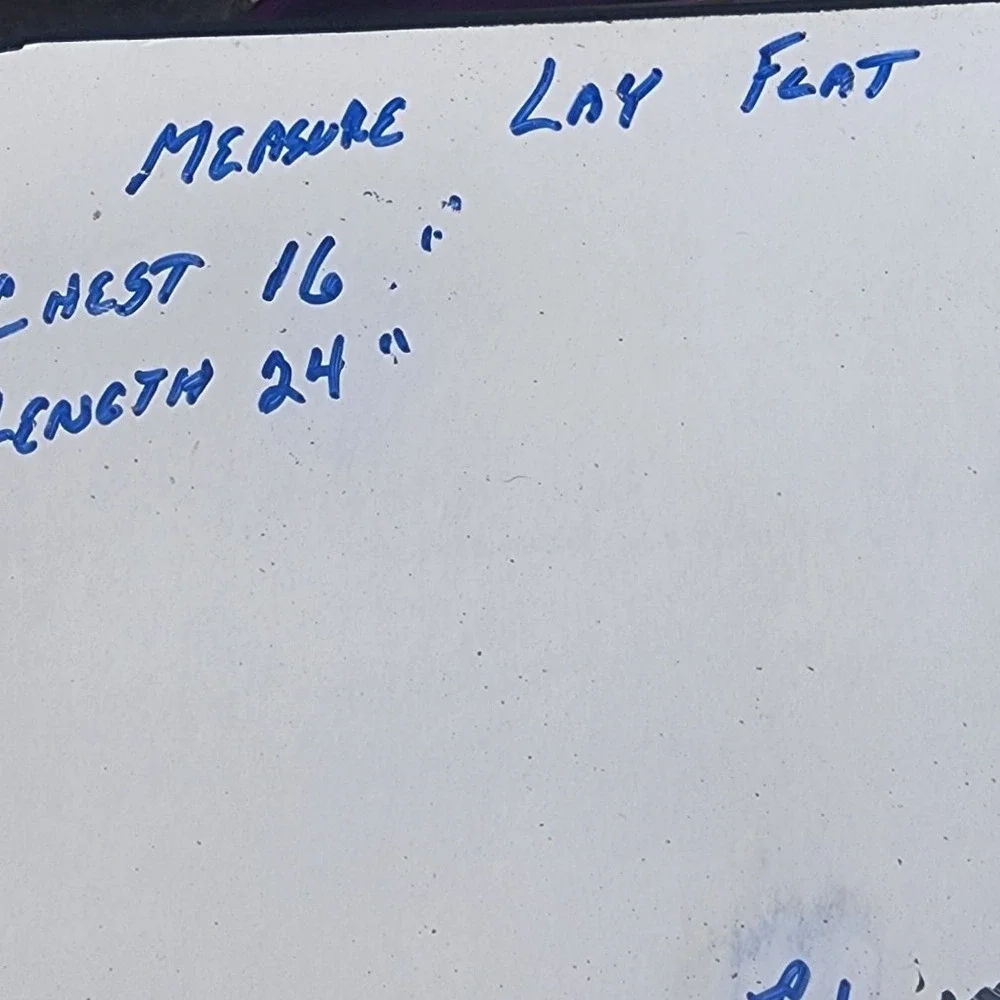 MEASURE LAY FLAT
CHEST 16 "
LENGTH 24 "